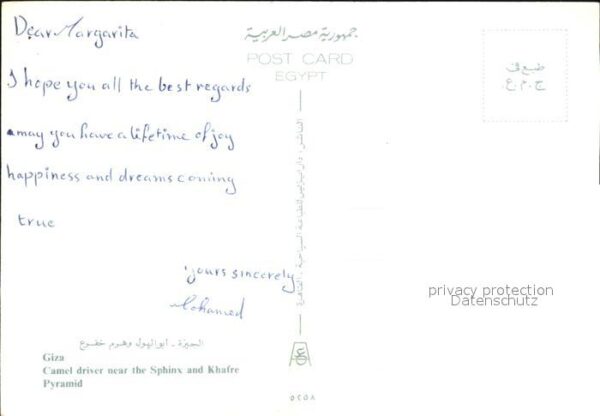 Dear Margarita
I hope you all the best regards
may you have a lifetime of joy
happiness and dreams coming
true
yours sincerely
Mohamed
جمهورية مصر العربية
POST CARD
EGYPT
طبع فى
ج.م.ع.
privacy protection
Datenschutz
الجيزة - أبو الهول وهرم خفرع
Giza
Camel driver near the Sphinx and Khafre
Pyramid